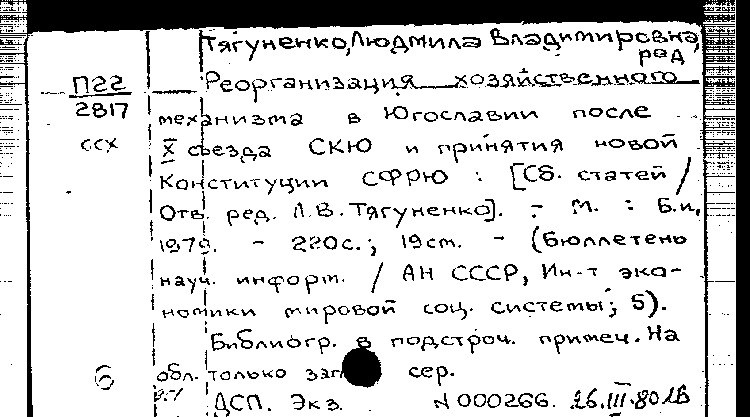 Тягуненко, Людмила Владимировна,
ред
П22
2817
ссх
6
Реорганизация хозяйственного
механизма в Югославии после
X съезда СКЮ и принятия новой
Конституции СФРЮ : [Сб. статей /
Отв. ред. Л.В. Тягуненко]. - М. : Б.и.,
1979. - 220с.; 19см. - (Бюллетень
науч. информ. / АН СССР, Ин-т эко-
номики мировой соц. системы; 5).
Библиогр. в подстроч. примеч. На
обл. только сер.
ДСП. Экз. N 000266. 26.III.80